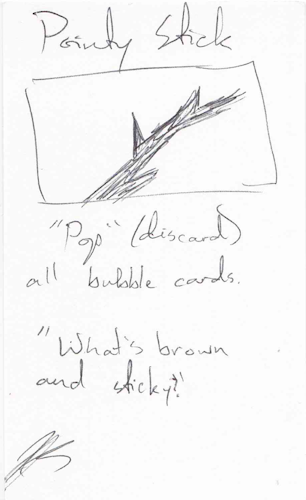 Pointy Stick
"Pop" (discard)
all bubble cards.
"What's brown
and sticky?"